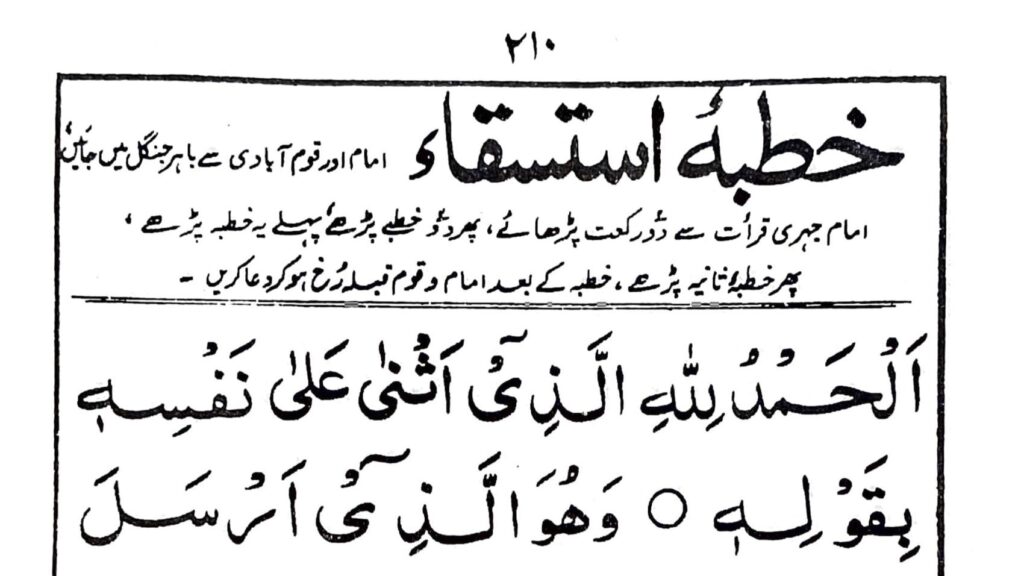 ۲۱۰
خطبۂ استسقاء امام اور قوم آبادی سے باہر جنگل میں جائیں،
امام جہری قرأت سے دو رکعت پڑھائے، پھر دو خطبے پڑھے، پہلے یہ خطبہ پڑھے،
پھر خطبۂ ثانیہ پڑھے، خطبہ کے بعد امام و قوم قبلہ رُخ ہو کر دعا کریں ۔
اَلْحَمْدُ لِلّٰهِ الَّذِیْۤ اَثْنٰی عَلٰی نَفْسِهٖ
بِقَوْلِهٖ ○ وَهُوَ الَّذِیْۤ اَرْسَلَ